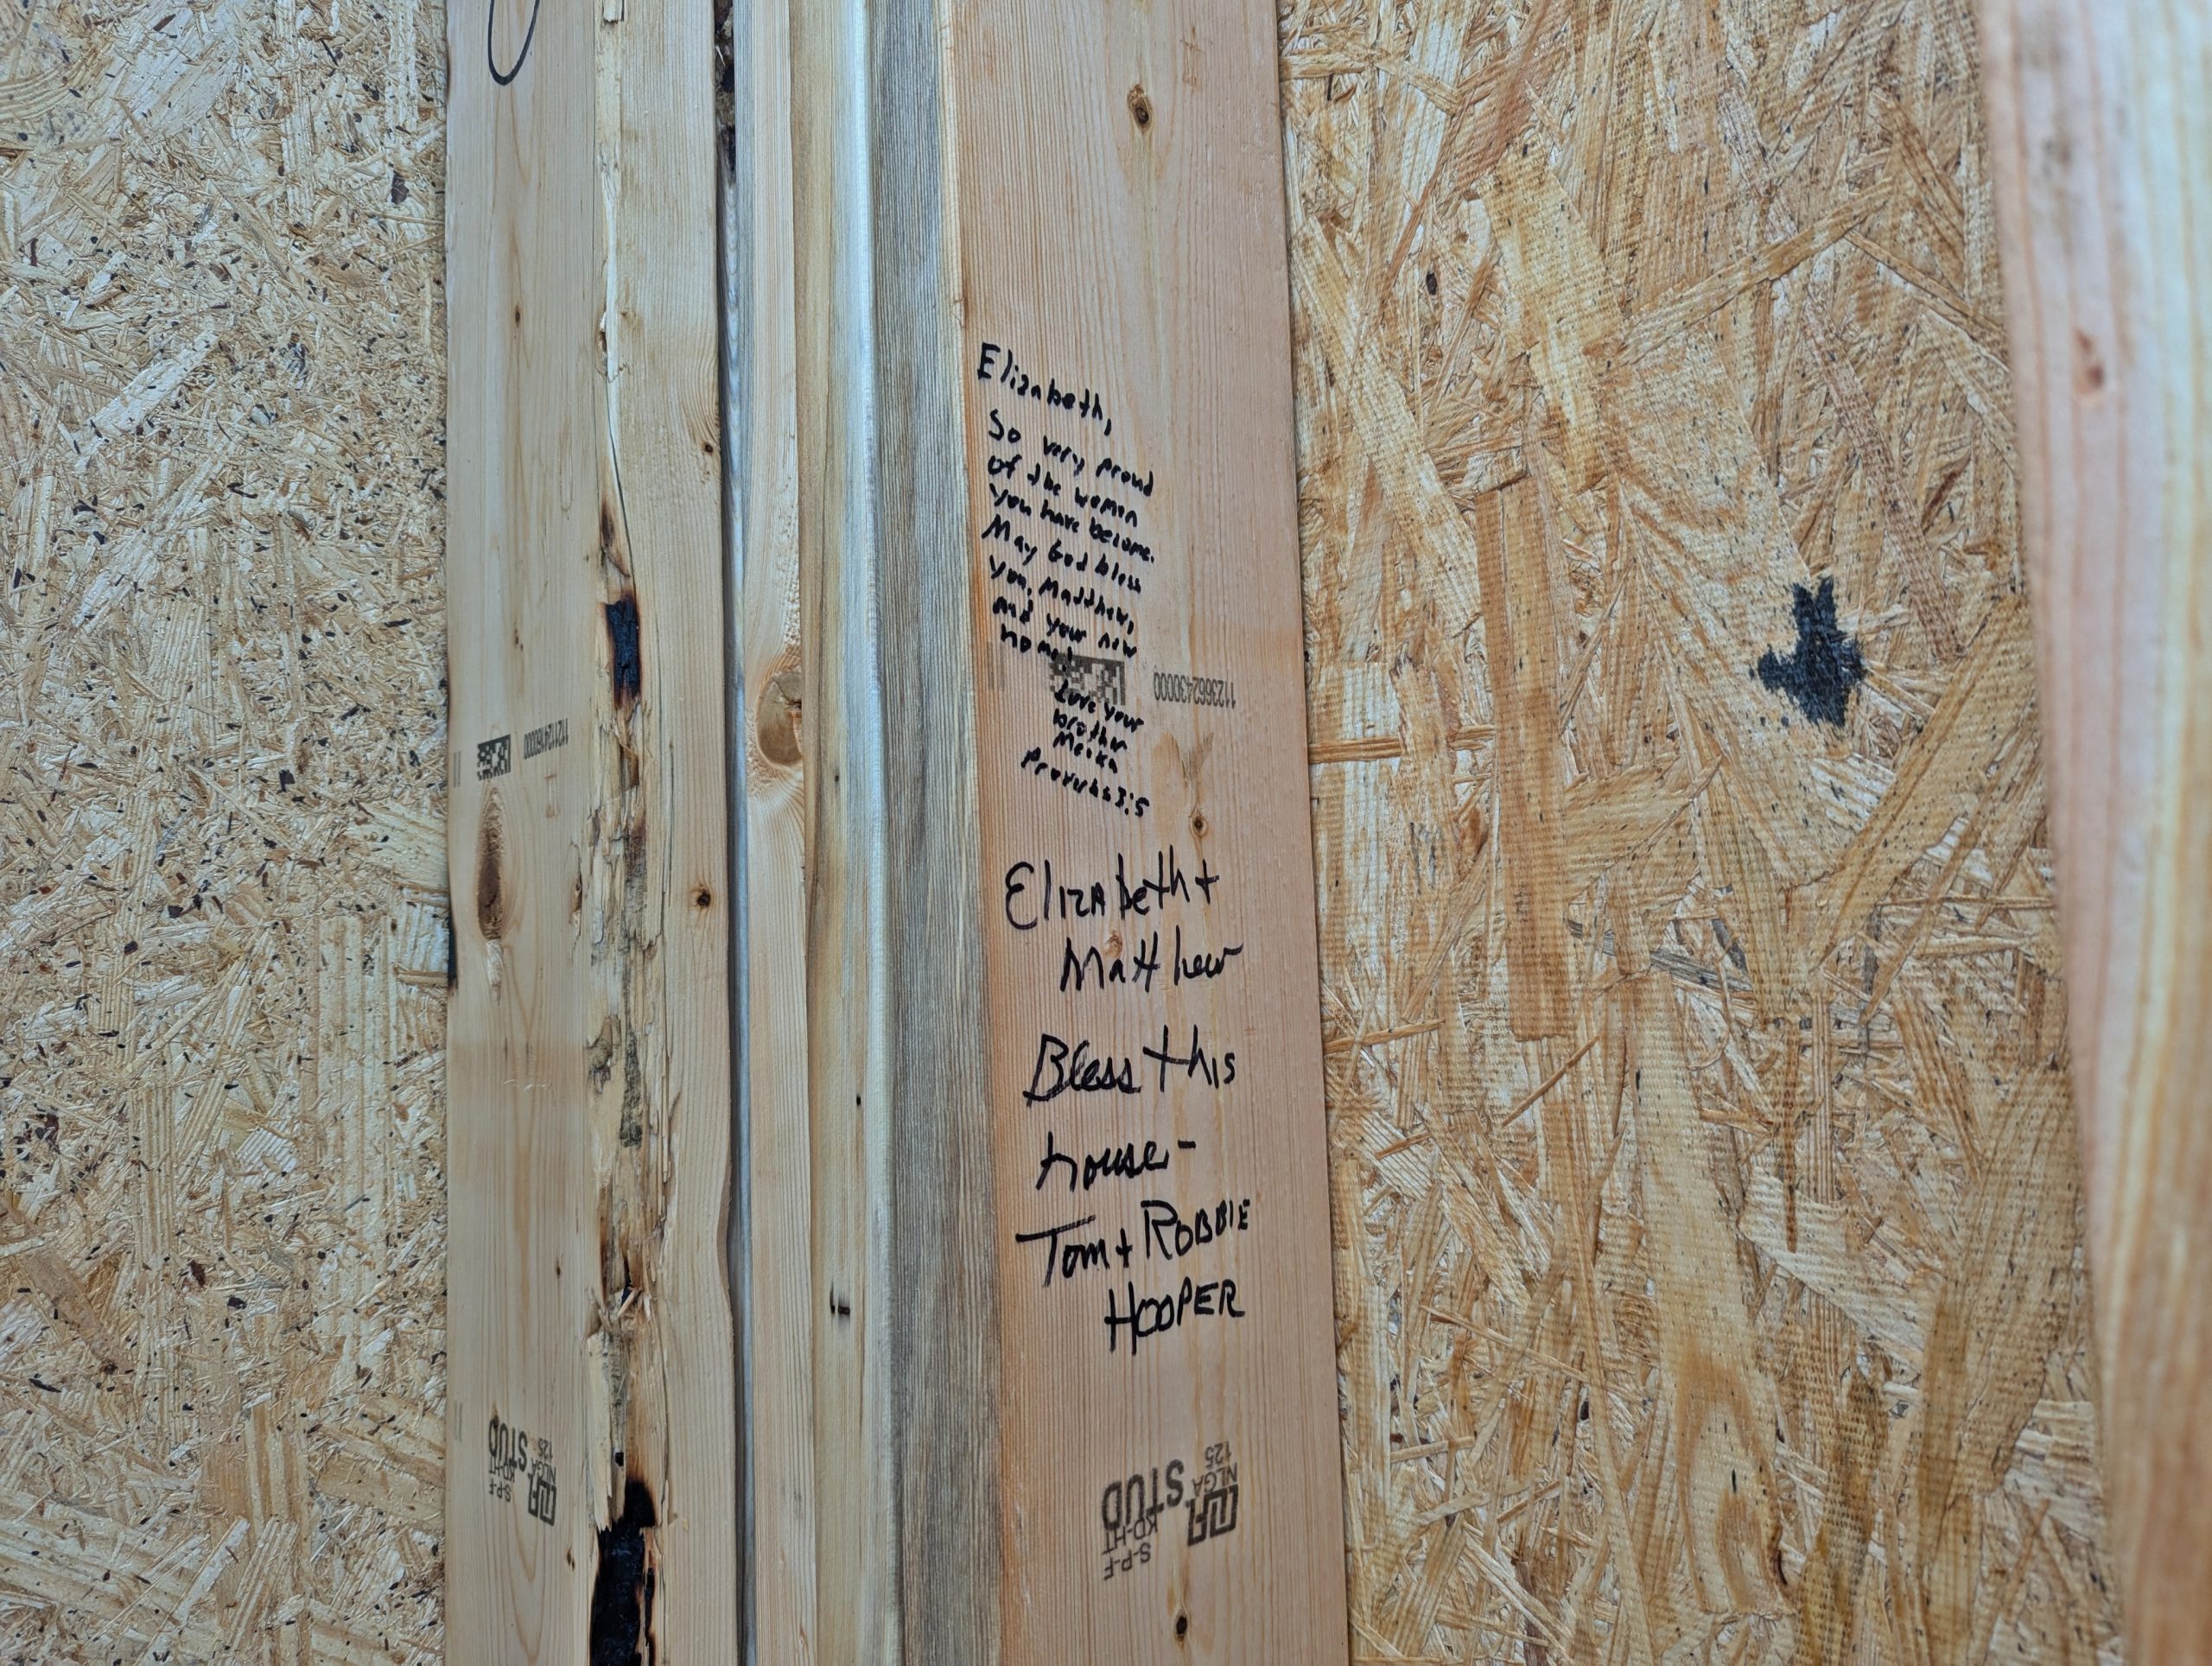 Elizabeth,
So very proud
of the women
you have become.
May God bless
you, Matthew,
and your new
home!
Love your
brother
Meeka
Proverbs 3:5
Elizabeth +
Matthew
Bless this
house-
Tom + ROBBIE
HOOPER
112366243000
S-P-F
KD-HT
STUD
NLGA
125
S-P-F
KD-HT
STUD
NLGA
125